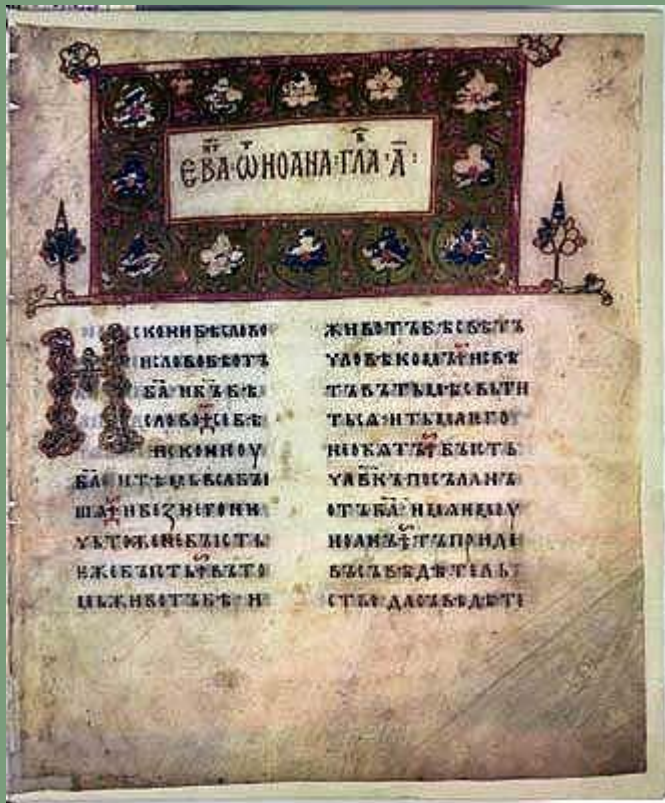 ЕВАⷢ҇·Ѿ ИОАНА·ГЛАⷡ҇·А҃:
ИСКОНИБѢСЛОВО
ИСЛОВОБѢОТЪ
БА҃·ИБ҃ЪБѢ
СЛОВО·СЕБѢ
ИСКОНИОУ
БА҃·ИТѢМЬВСАБЫ
ША·ИБЕЗНЕГОНИ
ЧЬТОЖЕНЕБЫСТЬ
ѤЖЕБЫСТЬ·ВЪТО
МЬЖИВОТЪБѢ·И
ЖИВОТЪБѢСВѢТЪ
ЧЛОВѢКОМЪ·ИСВѢ
ТЪВЪТЬМѢСВЬТИ
ТЬСѦ·ИТЬМАѤГО
НЕОБѨТЪ·БЫСТЬ
ЧЛВ҃КЪПОСЪЛАНЪ
ОТЪБА҃·ИМѦѤМОУ
ИОАНЪ·ТЪПРИДЕ
ВЪСЪВѢДѢТЕЛЬ
СТВО·ДАСЪВѢДѢТЕ